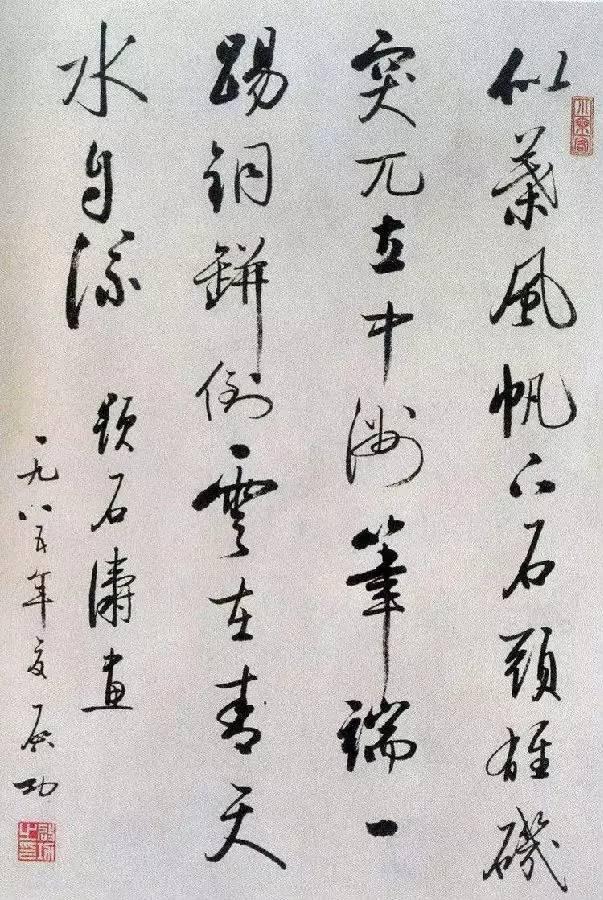 似葉風帆下石頭雄磯
突兀立中洲筆端一
踢銅缾倒雲在青天
水自流 題石濤畫
一九八五年夏 启功